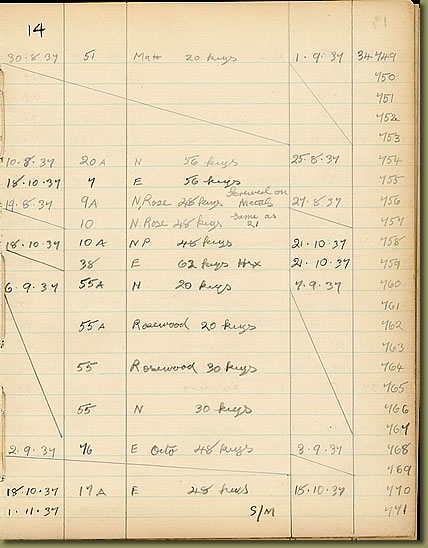 14
30.8.37 51 Matt 20 keys 1.9.37 34749
750
751
752
753
10.8.37 20A N 56 keys 25.8.37 754
18.10.37 7 E 56 keys 755
19.8.37 9A N.Rose 48 keys Screwed on Metals 27.8.37 756
10 N.Rose 48 keys Same as 21 757
18.10.37 10A NP 48 keys 21.10.37 758
38 E 62 keys Hex 21.10.37 759
6.9.37 55A N 20 keys 7.9.37 760
761
55A Rosewood 20 keys 762
763
55 Rosewood 30 keys 764
765
55 N 30 keys 766
767
2.9.37 76 E Octg 48 keys 3.9.37 768
769
18.10.37 17A E 48 keys 15.10.37 770
1.11.37 S/M 771